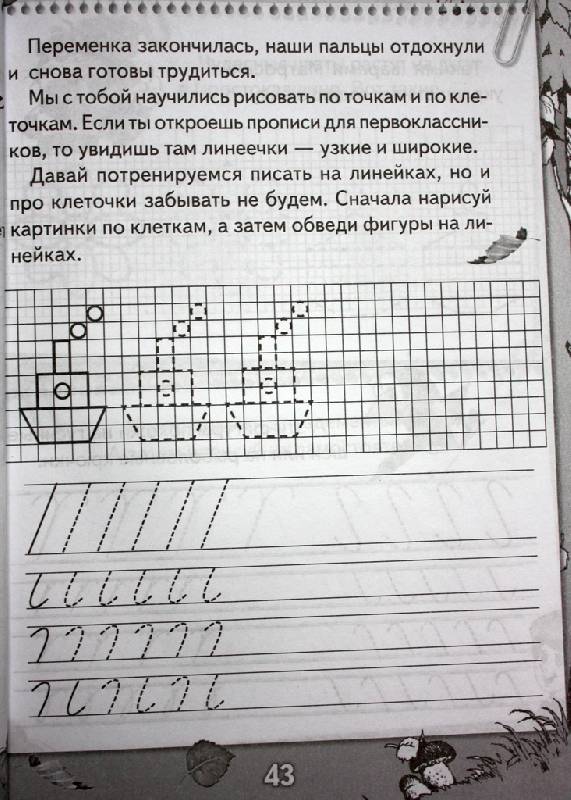 Переменка закончилась, наши пальцы отдохнули
и снова готовы трудиться.
Мы с тобой научились рисовать по точкам и по кле-
точкам. Если ты откроешь прописи для первоклассни-
ков, то увидишь там линеечки — узкие и широкие.
Давай потренируемся писать на линейках, но и
про клеточки забывать не будем. Сначала нарисуй
картинки по клеткам, а затем обведи фигуры на ли-
нейках.
43